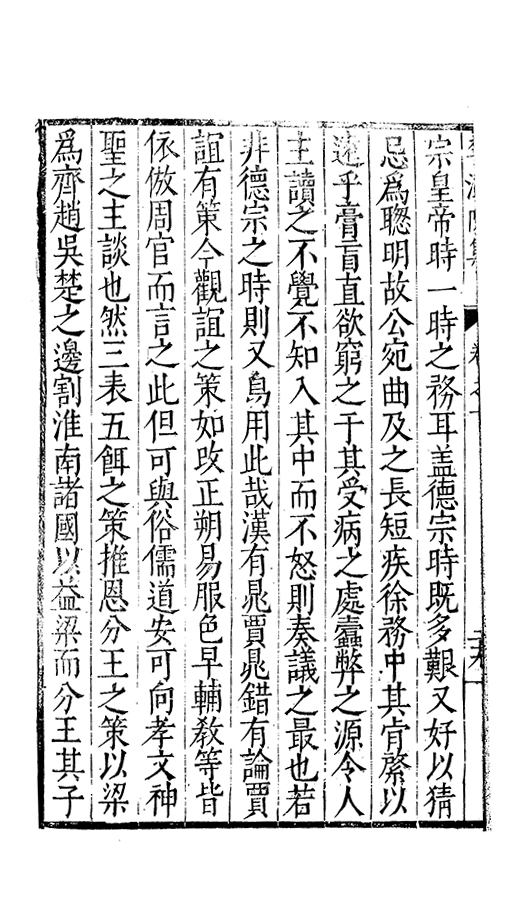 宗皇帝時一時之務耳盖德宗時既多艱又好以猜
忌爲聰明故公宛曲及之長短疾徐務中其肯綮以
逹乎膏肓直欲窮之于其受病之處蠧弊之源令人
主讀之不覺不知入其中而不怒則奏議之最也若
非德宗之時則又烏用此哉漢有晁賈晁錯有論賈
誼有策今觀誼之策如改正朔易服色早輔敎等皆
依倣周官而言之此但可與俗儒道安可向孝文神
聖之主談也然三表五餌之策推恩分王之策以梁
爲齊趙吳楚之邊割淮南諸國以益梁而分王其子